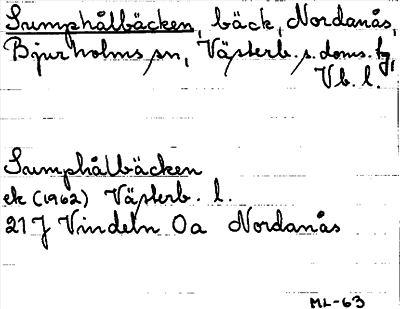 Sumphålbäcken, bäck, Nordanås,
Bjurholms sn, Västerb. s. doms. tg,
Vb. l.
Sumphålbäcken
ek (1962) Västerb. l.
21 J Vindeln 0a Nordanås
ML-63